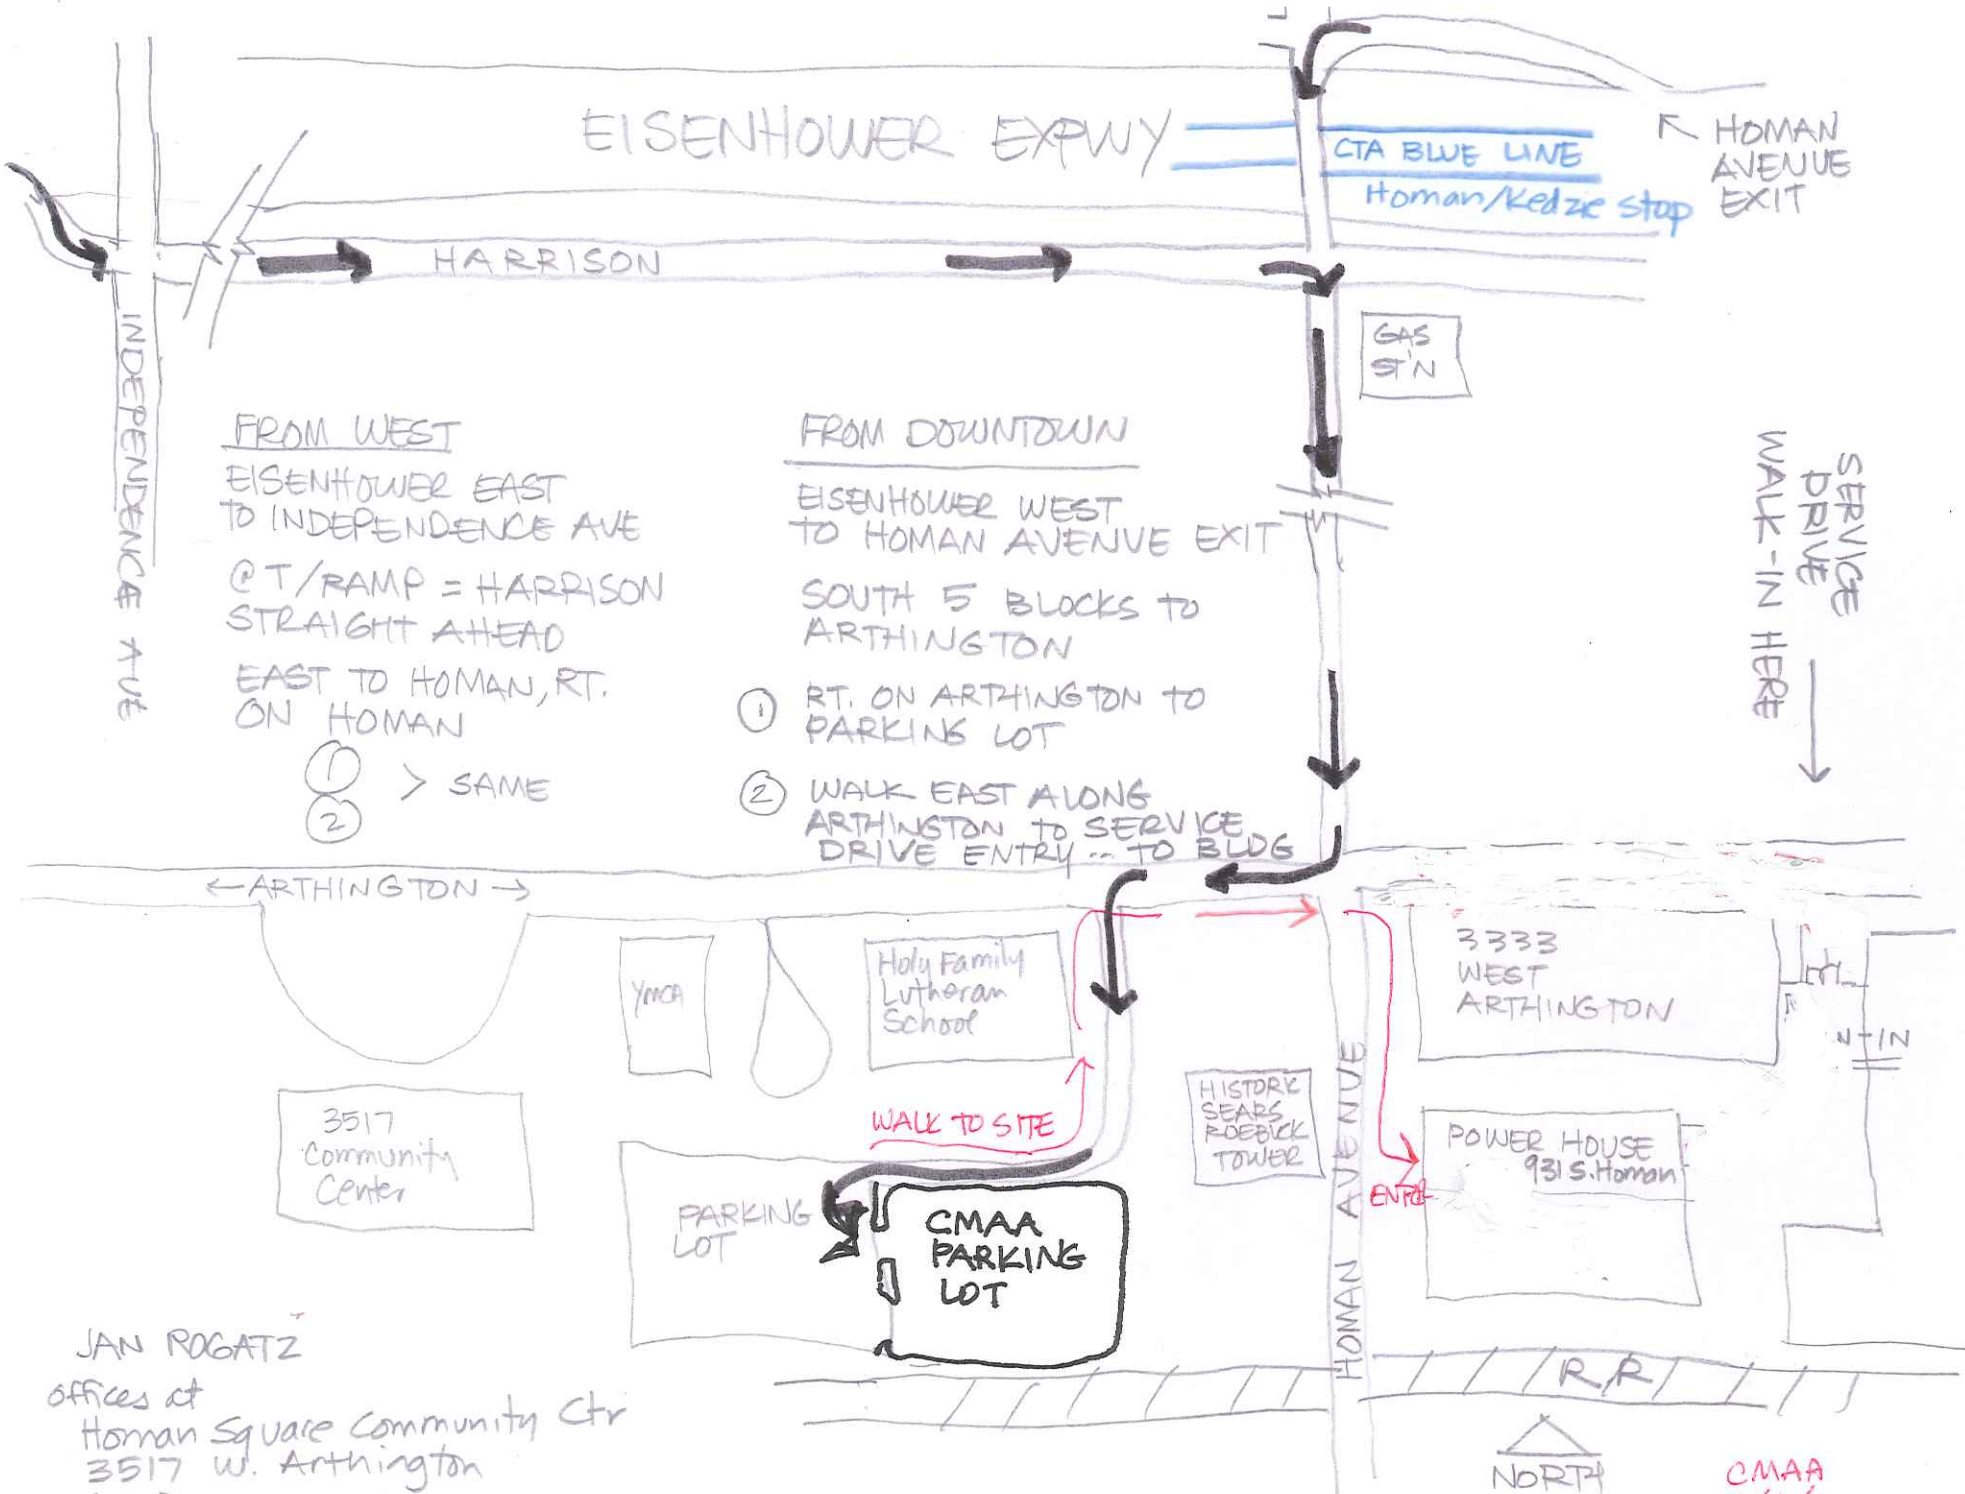 EISENHOWER EXPWY
CTA BLUE LINE
Homan/Kedzie Stop
HOMAN
AVENUE
EXIT
HARRISON
INDEPENDENCE AVE
GAS
ST'N
SERVICE
DRIVE
WALK-IN HERE
FROM WEST
EISENHOWER EAST
TO INDEPENDENCE AVE
@ T/RAMP = HARRISON
STRAIGHT AHEAD
EAST TO HOMAN, RT.
ON HOMAN
1
2
> SAME
FROM DOWNTOWN
EISENHOWER WEST
TO HOMAN AVENUE EXIT
SOUTH 5 BLOCKS TO
ARTHINGTON
1 RT. ON ARTHINGTON TO
PARKING LOT
2 WALK EAST ALONG
ARTHINGTON TO SERVICE
DRIVE ENTRY .. TO BLDG
← ARTHINGTON →
YMCA
Holy Family
Lutheran
School
3333
WEST
ARTHINGTON
3517
Community
Center
WALK TO SITE
HISTORIC
SEARS
ROEBUCK
TOWER
HOMAN AVENUE
POWER HOUSE
931 S. Homan
ENTER
PARKING
LOT
CMAA
PARKING
LOT
JAN ROGATZ
offices at
Homan Square Community Ctr
3517 W. Arthington
R.R
NORTH
CMAA